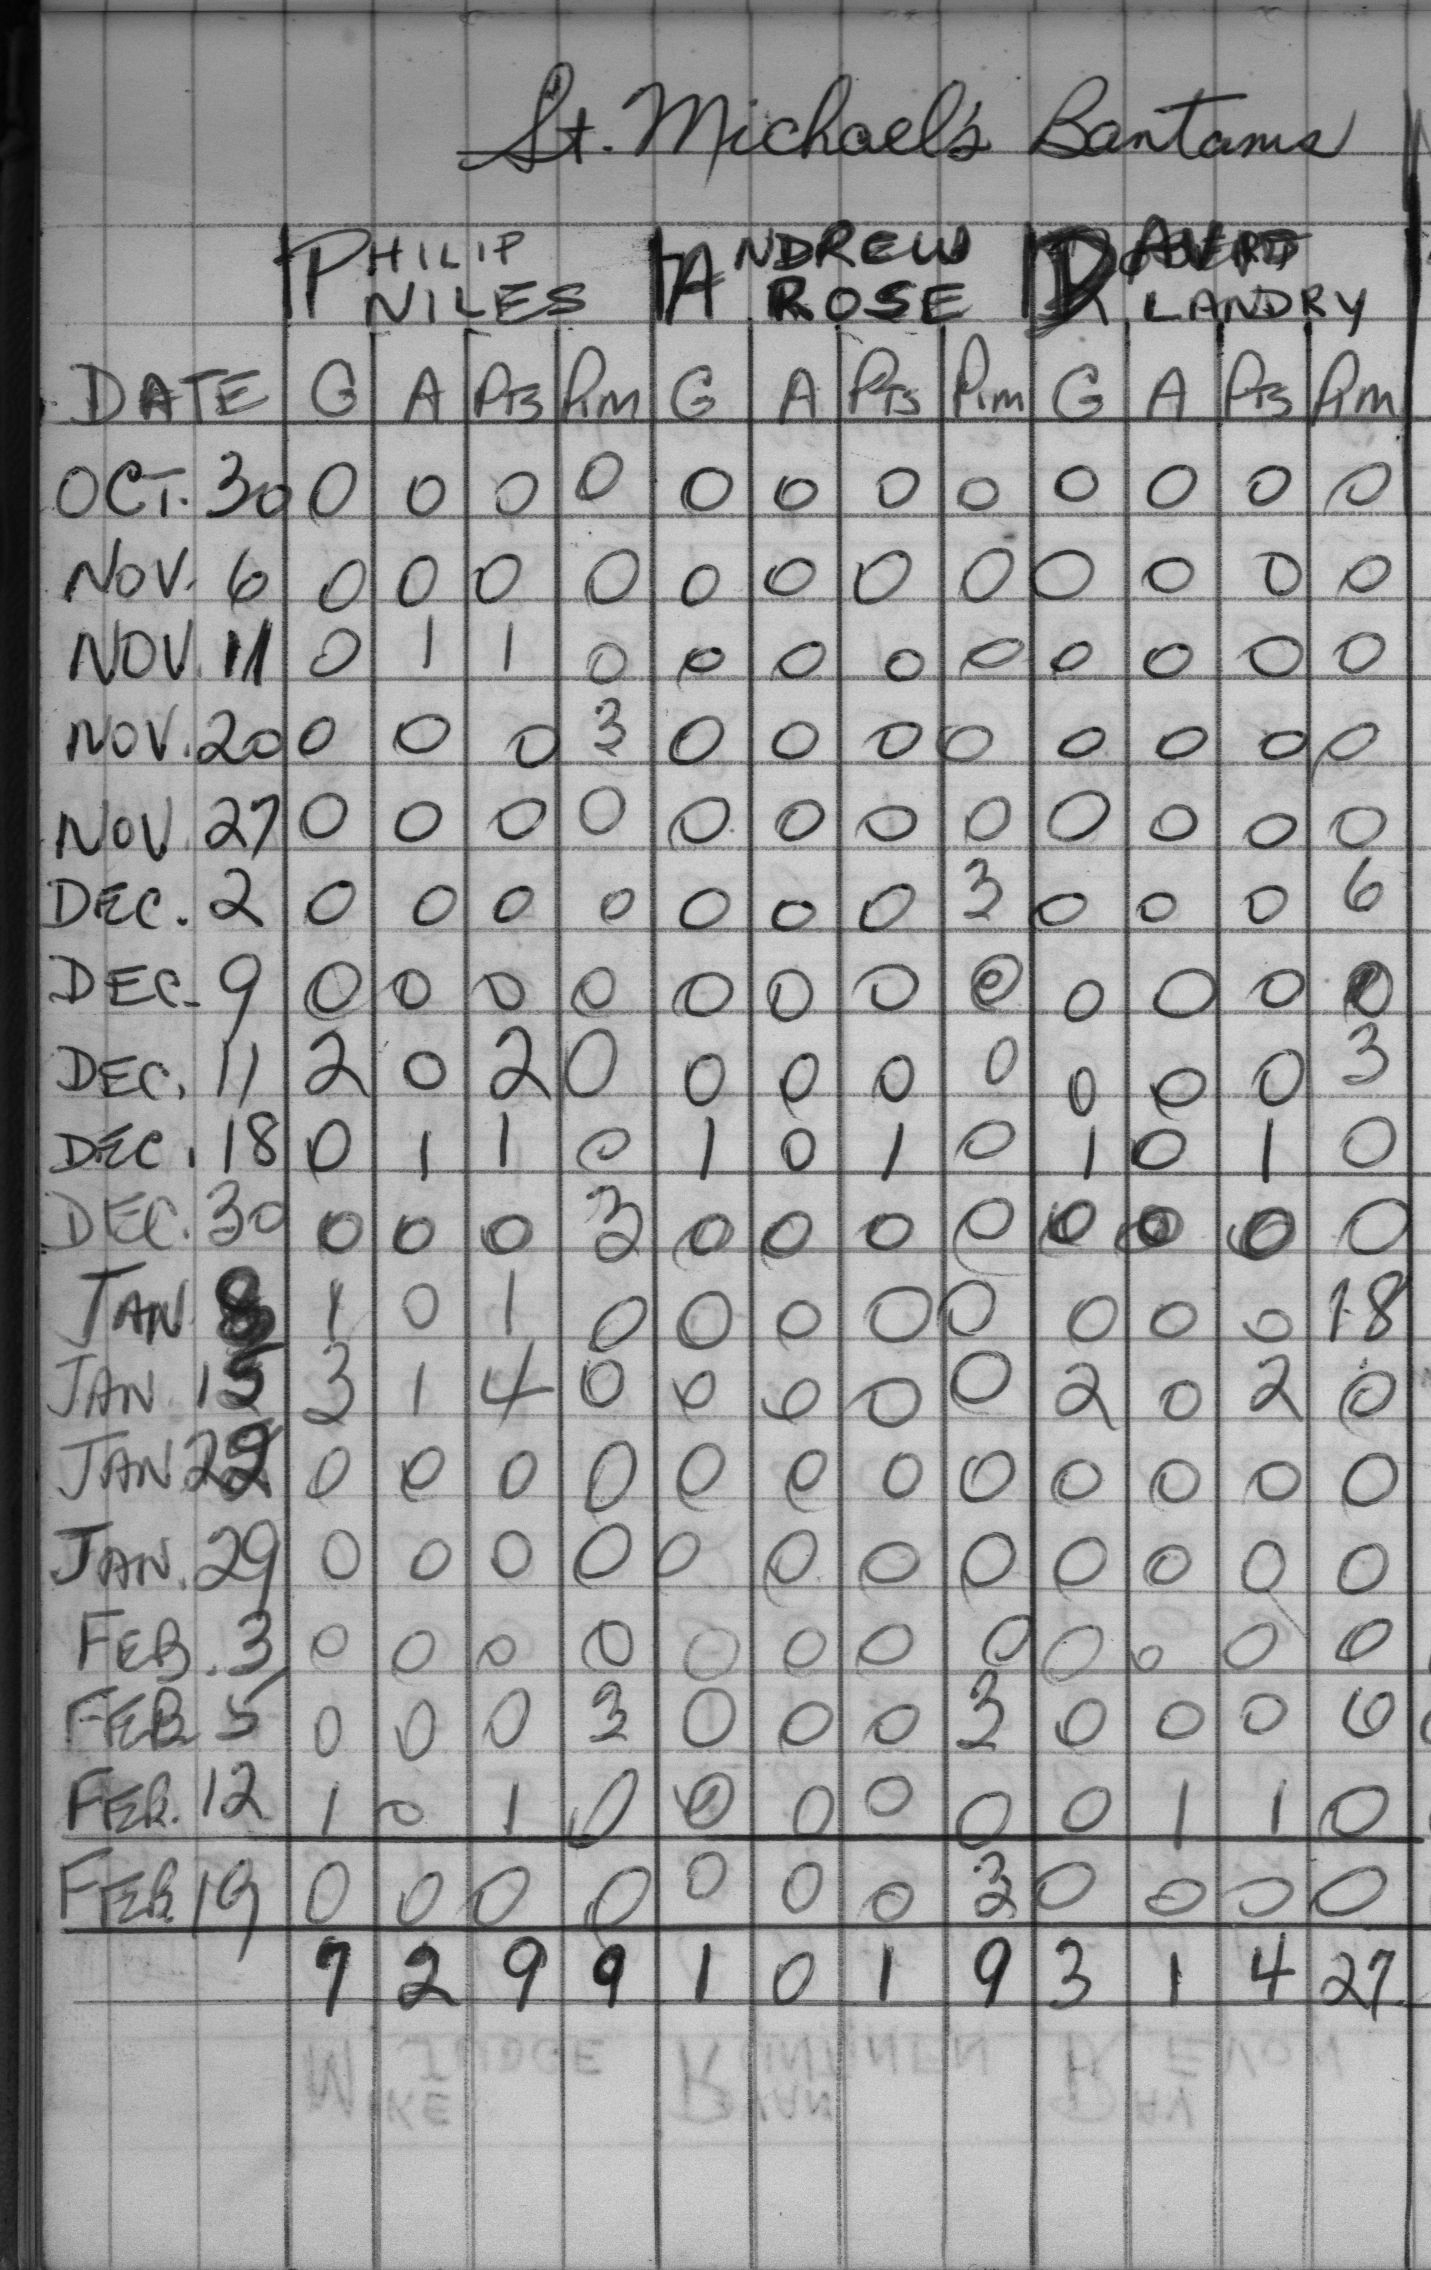 St. Michael's Bantams
PHILIP NILES ANDREW ROSE LANDRY
DATE G A Pts Pim G A Pts Pim G A Pts Pim
OCT. 30 0 0 0 0 0 0 0 0 0 0 0 0
NOV. 6 0 0 0 0 0 0 0 0 0 0 0 0
NOV. 11 0 1 1 0 0 0 0 0 0 0 0 0
NOV. 20 0 0 0 3 0 0 0 0 0 0 0 0
NOV. 27 0 0 0 0 0 0 0 0 0 0 0 0
DEC. 2 0 0 0 0 0 0 0 3 0 0 0 6
DEC. 9 0 0 0 0 0 0 0 0 0 0 0 0
DEC. 11 2 0 2 0 0 0 0 0 0 0 0 3
DEC. 18 0 1 1 0 1 0 1 0 1 0 1 0
DEC. 30 0 0 0 3 0 0 0 0 0 0 0 0
JAN 8 1 0 1 0 0 0 0 0 0 0 0 18
JAN 15 3 1 4 0 0 0 0 0 2 0 2 0
JAN 22 0 0 0 0 0 0 0 0 0 0 0 0
JAN. 29 0 0 0 0 0 0 0 0 0 0 0 0
FEB. 3 0 0 0 0 0 0 0 0 0 0 0 0
FEB 5 0 0 0 3 0 0 0 3 0 0 0 0
FEB. 12 1 0 1 0 0 0 0 0 0 1 1 0
FEB. 19 0 0 0 0 0 0 0 3 0 0 0 0
7 2 9 9 1 0 1 9 3 1 4 27